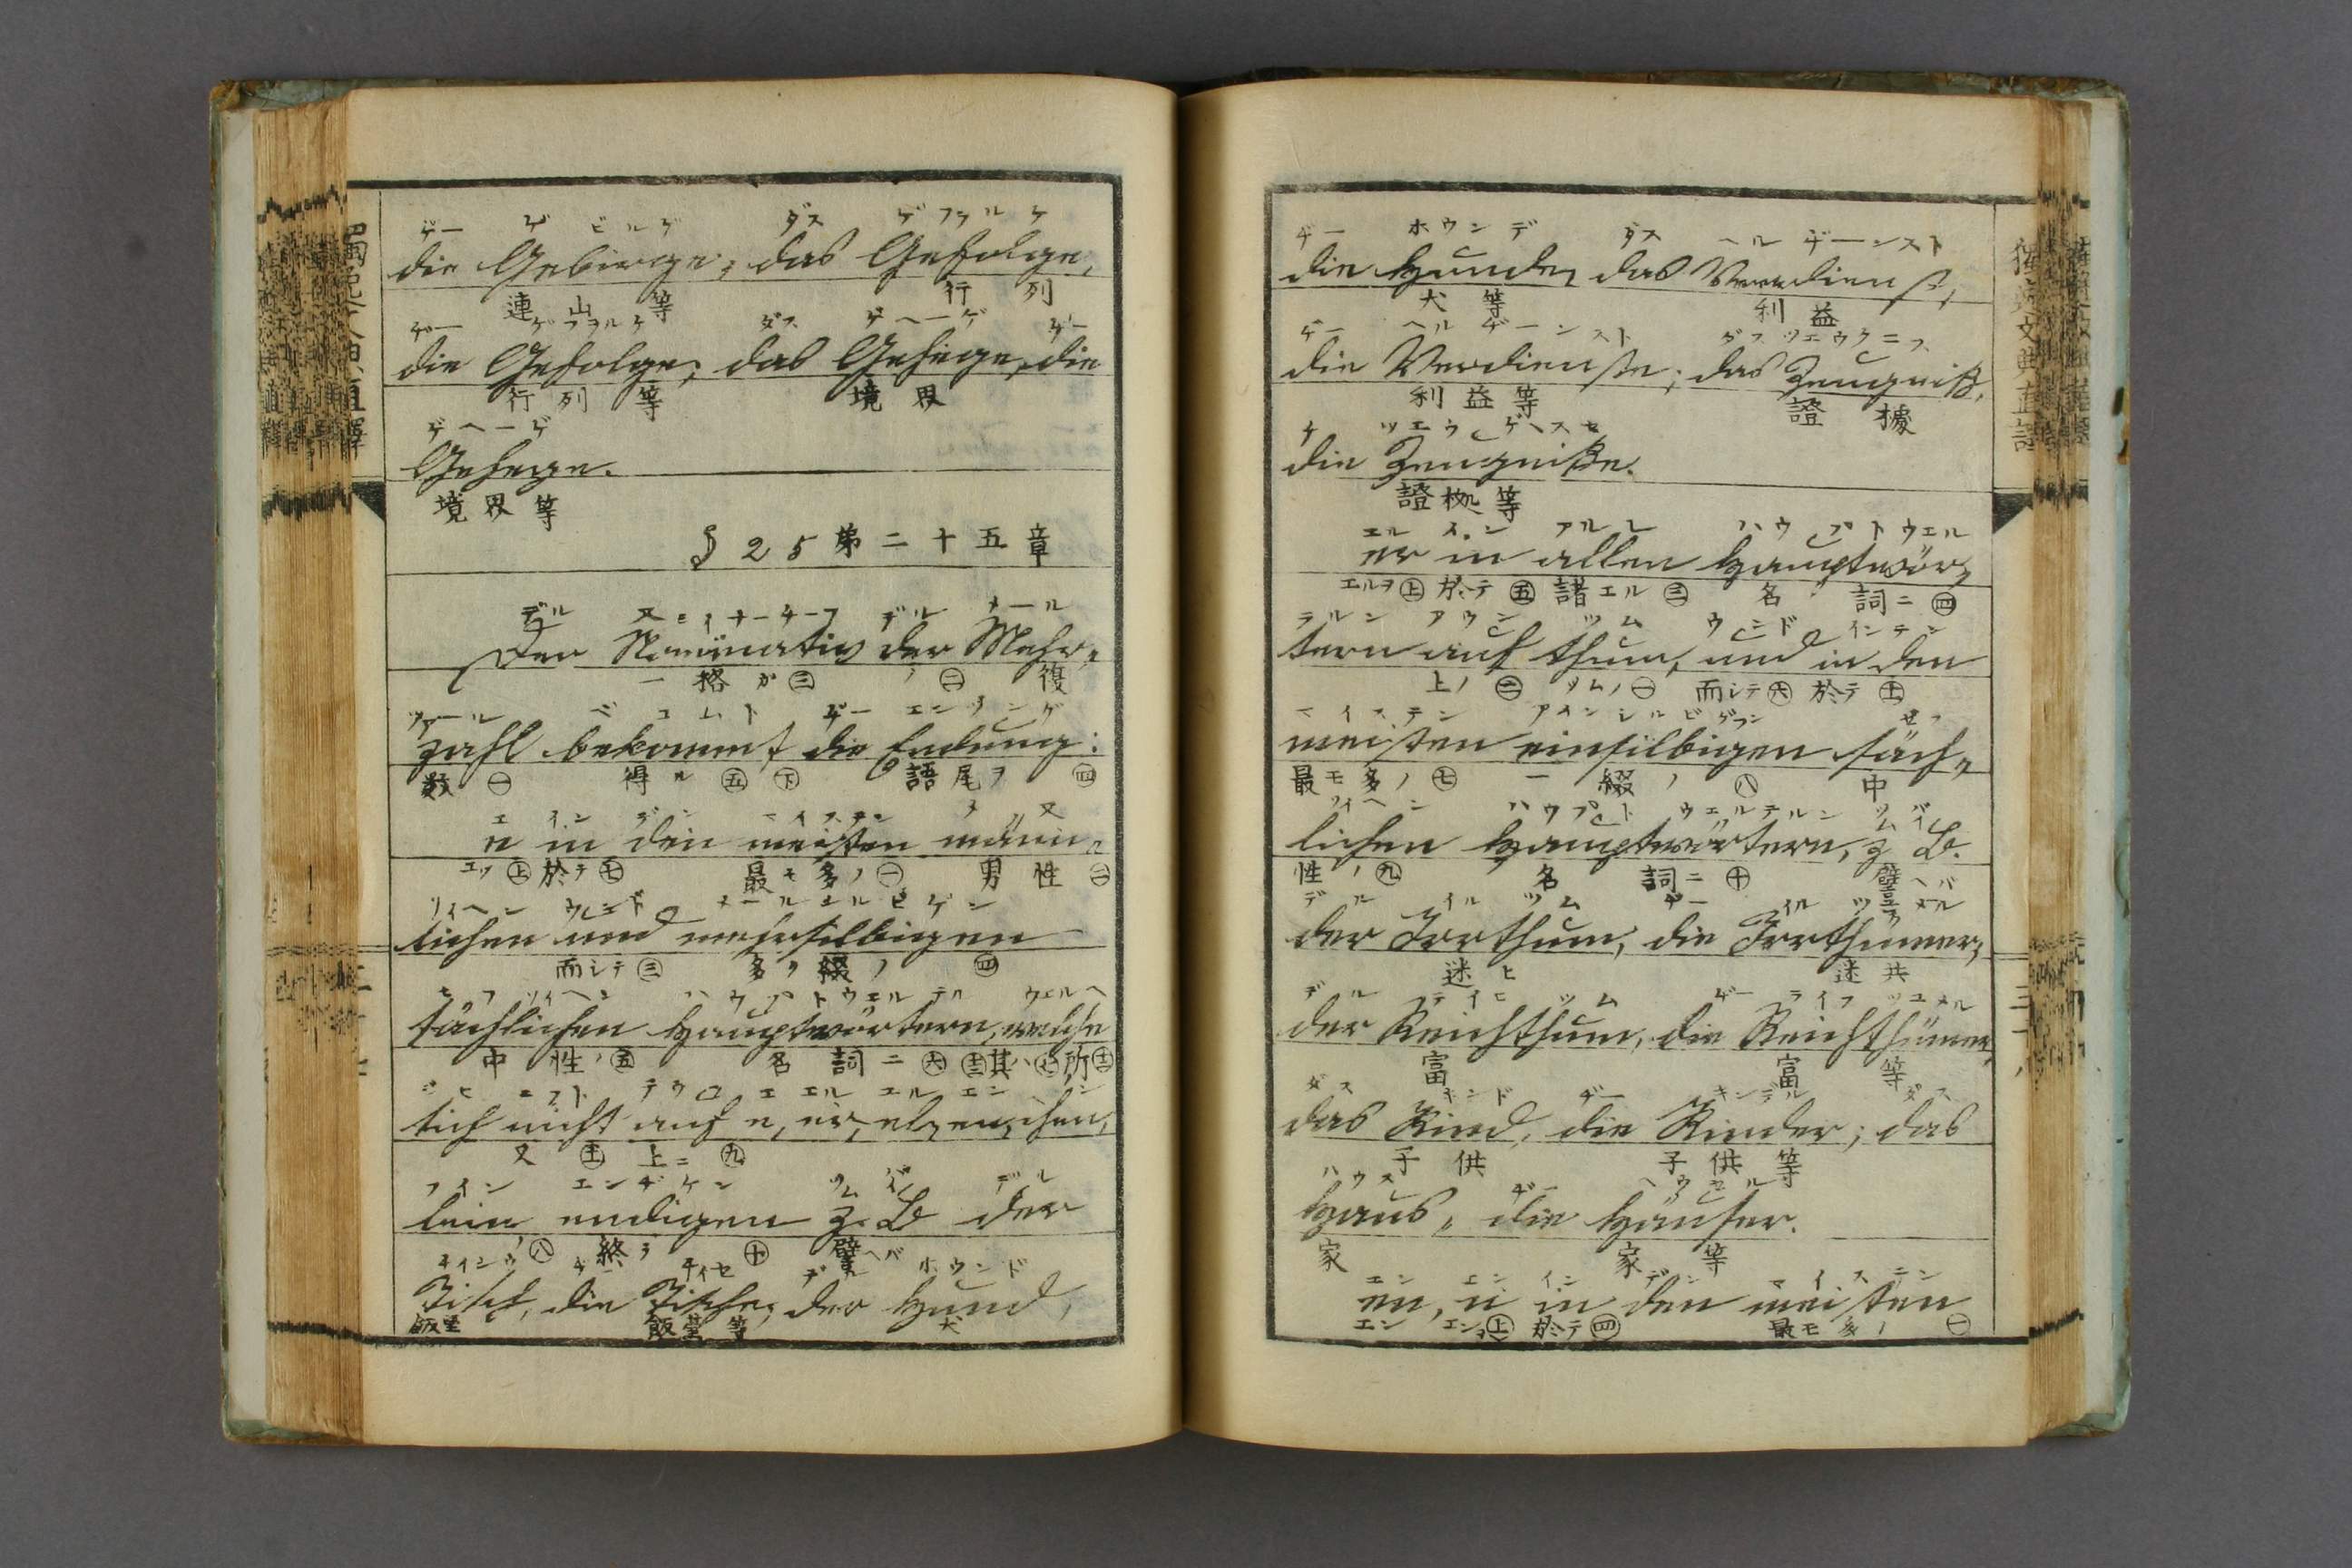 ヂー ゲビルゲ ダス ゲフヲルケ
die Gebirge; das Gefolge,
連山等 行列
ヂー ゲフヲルケ ダス ゲヘーゲ ヂー
die Gefolge; das Gehege, die
行列等 境界
ゲヘーゲ
Gehege.
境界等
§ 25 第二十五章
デル ノミナーチーフ デル メール
Der Nominativ der Mehr-
一格ガ㊂ ノ㊁ 複
ツァール ベコムト ヂー エンヅング
zahl bekommt die Endung:
数㊀ 得ル㊄㊦ 語尾ヲ㊃
エ イン デン マイステン メンヌ
e in den meisten männ-
エヲ㊤於テ㊆ 最モ多ノ㊀ 男性㊁
リイヘン ウンド メールシルビゲン
lichen und mehrsilbigen
而シテ㊂ 多ク綴ノ㊃
セフリイヘン ハウプトウェルテルン ウェルヘ
sächlichen Hauptwörtern, welche
中性ノ㊄ 名詞ニ㊅
sich nicht auf e, er, el, en, chen,
又 上ニ㊈
ライン エンヂゲン ツム バイ デル
lein endigen z. B. der
㊇ 終ラ㊉ 譬ヘバ
Tisch, die Tische; der Hund,
飯臺 飯臺等 犬
ヂー ホウンデ ダス ヘルヂーンスト
die Hunde, das Verdienst,
犬等 利益
ヂー ヘルヂーンスト ダス ツエウクニス
die Verdienste; das Zeugniß,
利益等 證據
die Zeugniße.
證拠等
エル イン アルレ ハウプトウエル
er in allen Hauptwör-
エルヲ㊤於テ㊄諸エル㊂ 名詞ニ㊃
テルン アウフ ツム ウンド イン デン
tern auf thum, und in den
上ノ㊁ ツムノ㊀ 而シテ㊅ 於テ
マイステン アインシルビゲン ゼフ
meisten einsilbigen säch-
最モ多ノ㊆ 一綴ノ㊇ 中
リイヘン ハウプト ウェルテルン ツム バイ
lichen Hauptwörtern, z. B.
性ノ㊈ 名詞ニ㊉ 譬ヘバ
デル イルツム ヂー イルツメル
der Irrthum, die Irrthümer,
迷ヒ 迷共
デル ライヒツム ヂー ライフツユメル
der Reichthum, die Reichthümer,
富 富等
ダス キンド ヂー キンデル ダス
das Kind, die Kinder; das
子供 子供等
ハウス ヂー ヘウセル
Haus, die Häuser.
家 家等
エン エン イン デン マイステン
en, n in den meisten
エン エンヲ㊤於テ㊃ 最モ多ノ㊀